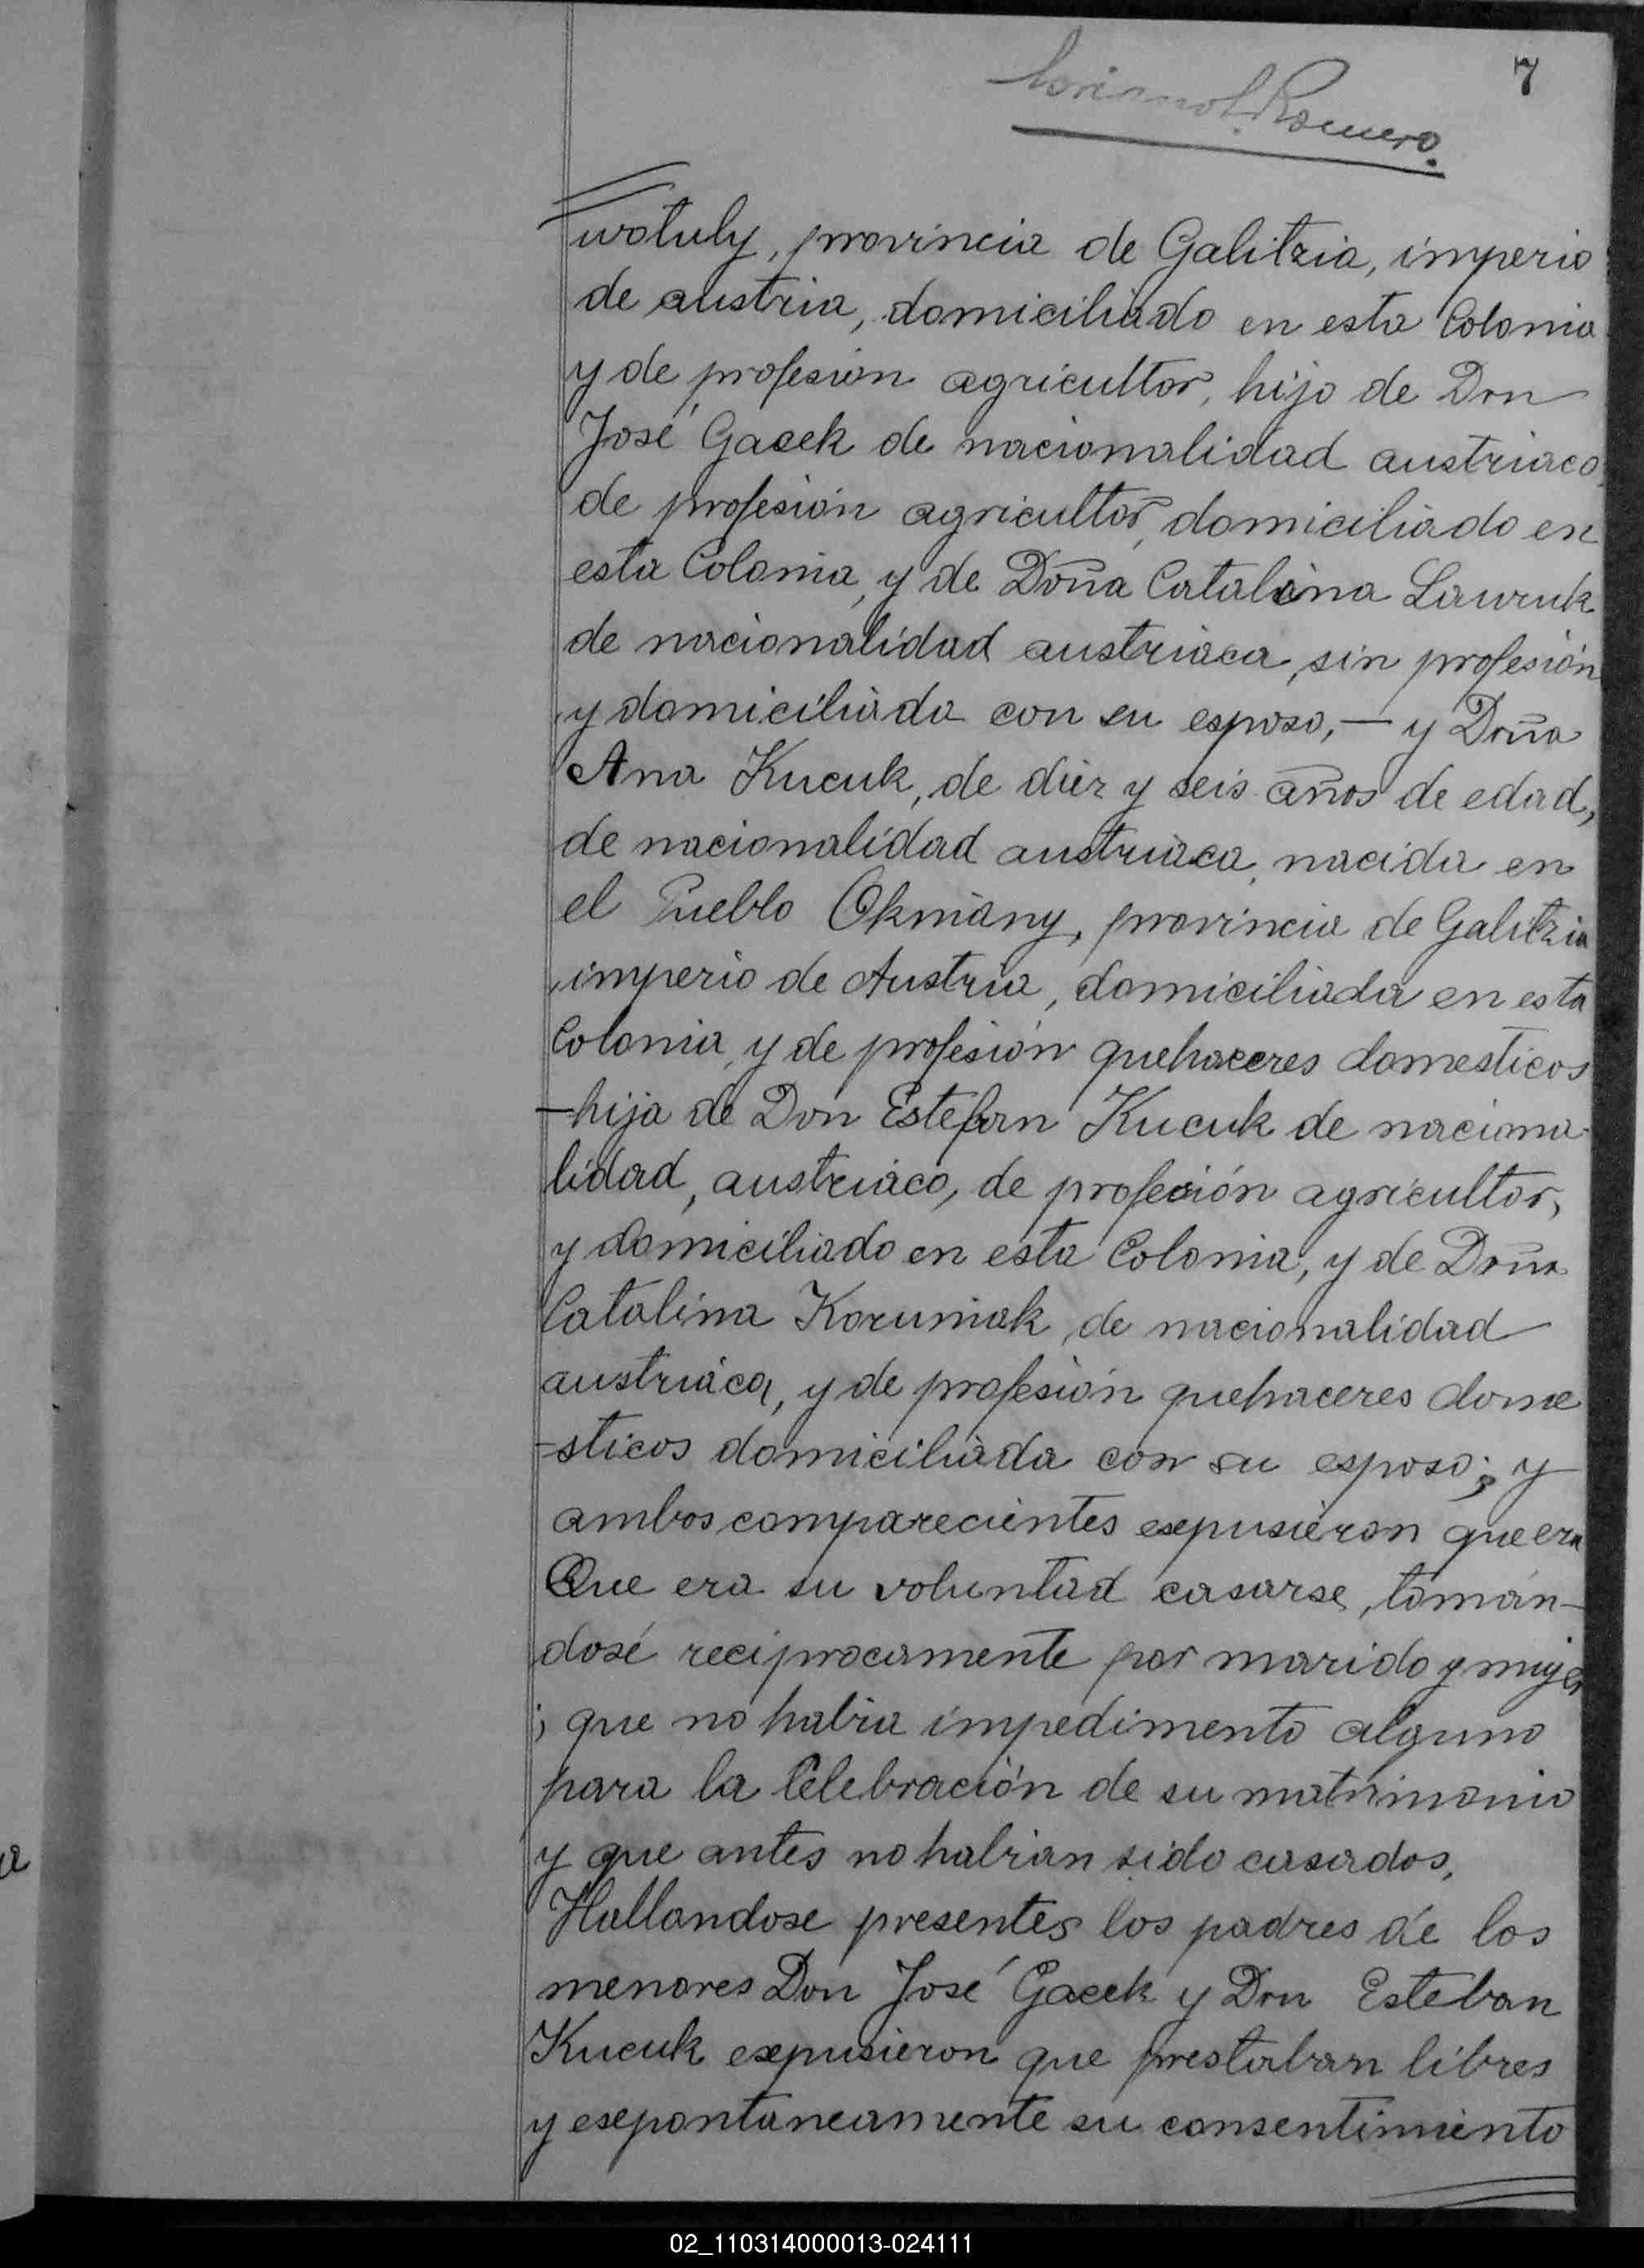 7
Romero.
wotuly, provincia de Galitzia, imperio
de austria, domiciliado en esta Colonia
y de profesión agricultor, hijo de Don
José Gacek de nacionalidad austriaco,
de profesión agricultor, domiciliado en
esta Colonia, y de Doña Catalina Lawruk
de nacionalidad austriaca, sin profesión
y domiciliada con su esposo, — y Doña
Ana Kucuk, de diez y seis años de edad,
de nacionalidad austriaca, nacida en
el Pueblo Okniany, provincia de Galitzia
, imperio de Austria, domiciliada en esta
Colonia, y de profesión quehaceres domesticos
— hija de Don Estefan Kucuk de naciona-
lidad, austriaco, de profesión agricultor,
y domiciliado en esta Colonia, y de Doña
Catalina Kozuniak, de nacionalidad
austriáca, y de profesión quehaceres dome
=sticos domiciliada con su esposo; y
ambos comparecientes expusieron que era
Que era su voluntad casarse, tomán-
dosé reciprocamente por marido y mujer
; que no habia impedimento alguno
para la Celebración de su matrimonio
y que antes no habian sido casados.
Hallandose presentes los padres de los
menores Don José Gacek y Don Esteban
Kucuk expusieron que prestaban libres
y esepontaneamente su consentimiento
02_110314000013-024111